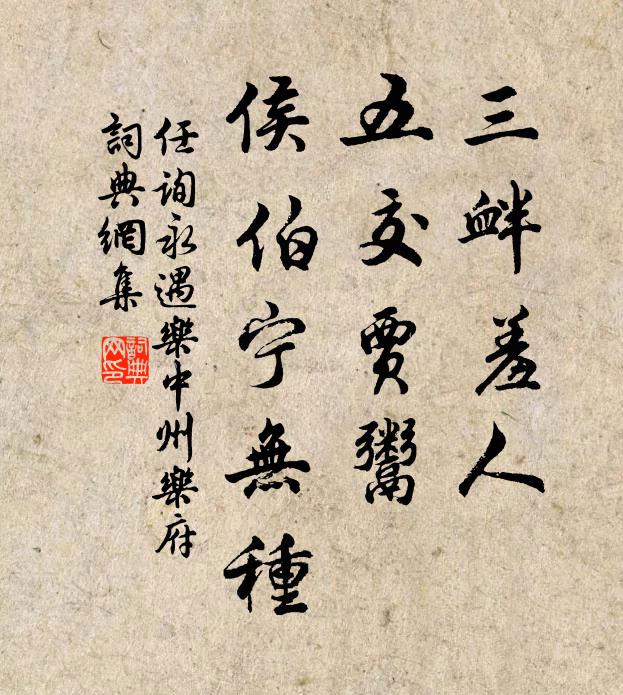 三衅羞人
五交賈鬻
侯伯宁無種
任詢永遇樂中州樂府
詞典網集
詞典網印